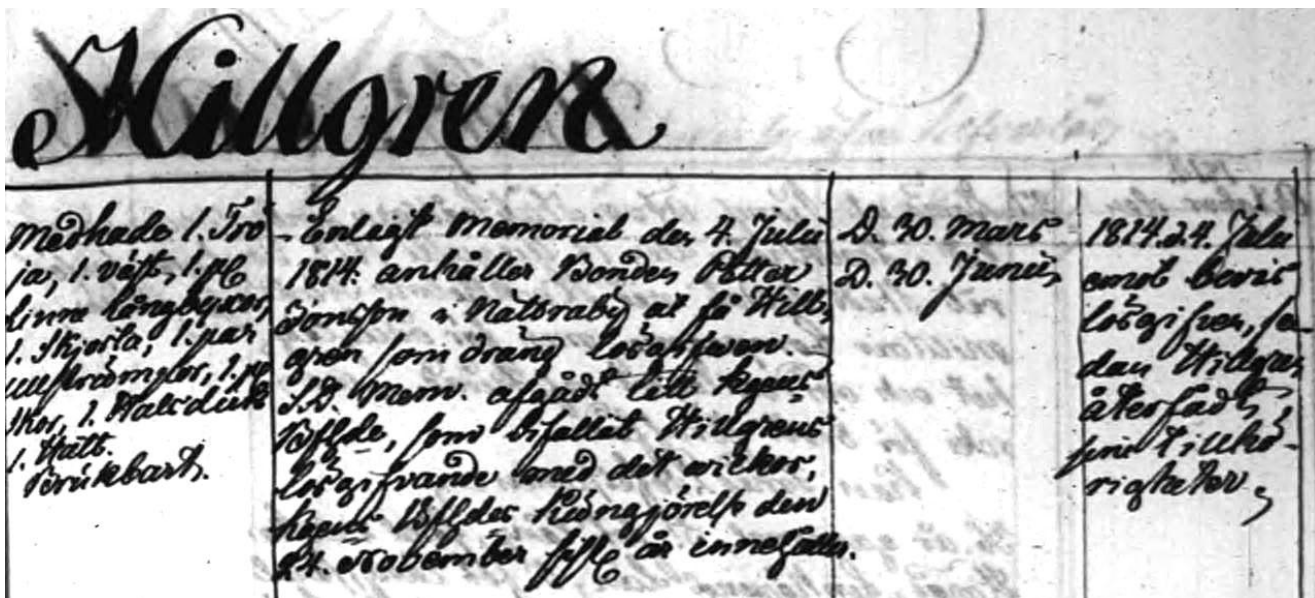 Hillgren
Medhade 1. Trö
ja, 1. väst, 1. pr
linne långbyxor,
1. Skjorta, 1. par
ullstrümpor, 1. pr
skor, 1. Halsduk
1. Hatt.
Brukbart.
Enligt Memorial den 4. Julii
1814. anhåller Bonden Petter
Jonsson i Nättraby at få Hill,
gren som dräng lösgifwen.
S.D. Mem. afgådt till Kgens
Bfhde, som bifallit Hillgrens
lösgifvande med det wilkor,
Kgens Bfhdes Kungjörelse den
24. November sistl. år innehåller.
D. 30. Mars
D. 30. Junii
1814. d. 4. Julii
emot bevis
lösgifven, se
dan Hillgren
återfådt
sine tillhö-
righeter,